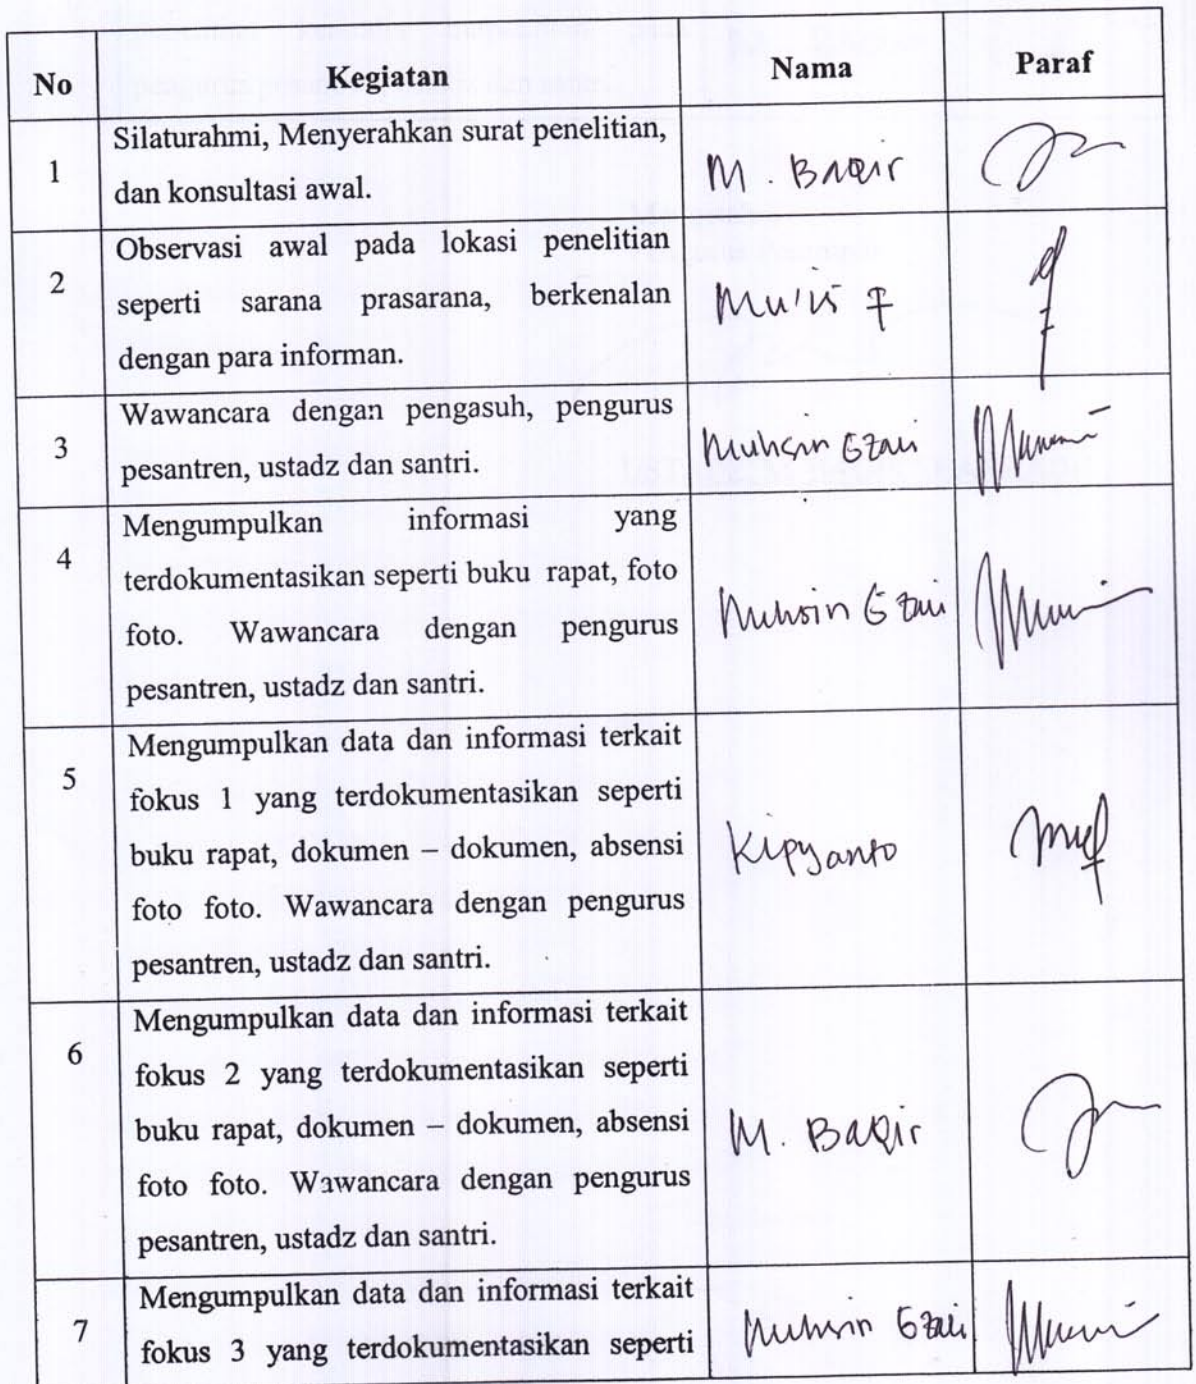 No Kegiatan Nama Paraf
1 Silaturahmi, Menyerahkan surat penelitian,
dan konsultasi awal. M. Baqir
2 Observasi awal pada lokasi penelitian
seperti sarana prasarana, berkenalan
dengan para informan. Mu'is F
3 Wawancara dengan pengasuh, pengurus
pesantren, ustadz dan santri. Muhsin Gzali
4 Mengumpulkan informasi yang
terdokumentasikan seperti buku rapat, foto
foto. Wawancara dengan pengurus
pesantren, ustadz dan santri. Muhsin Gzali
5 Mengumpulkan data dan informasi terkait
fokus 1 yang terdokumentasikan seperti
buku rapat, dokumen – dokumen, absensi
foto foto. Wawancara dengan pengurus
pesantren, ustadz dan santri. Kipyanto
6 Mengumpulkan data dan informasi terkait
fokus 2 yang terdokumentasikan seperti
buku rapat, dokumen – dokumen, absensi
foto foto. Wawancara dengan pengurus
pesantren, ustadz dan santri. M. Baqir
7 Mengumpulkan data dan informasi terkait
fokus 3 yang terdokumentasikan seperti Muhsin Gzali